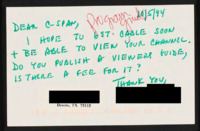 DEAR C-SPAN, Program Guide 10/5/94
I HOPE TO GET CABLE SOON
+ BE ABLE TO VIEW YOUR CHANNEL.
DO YOU PUBLISH A VIEWERS GUIDE,
IS THERE A FEE FOR IT?
THANK YOU,